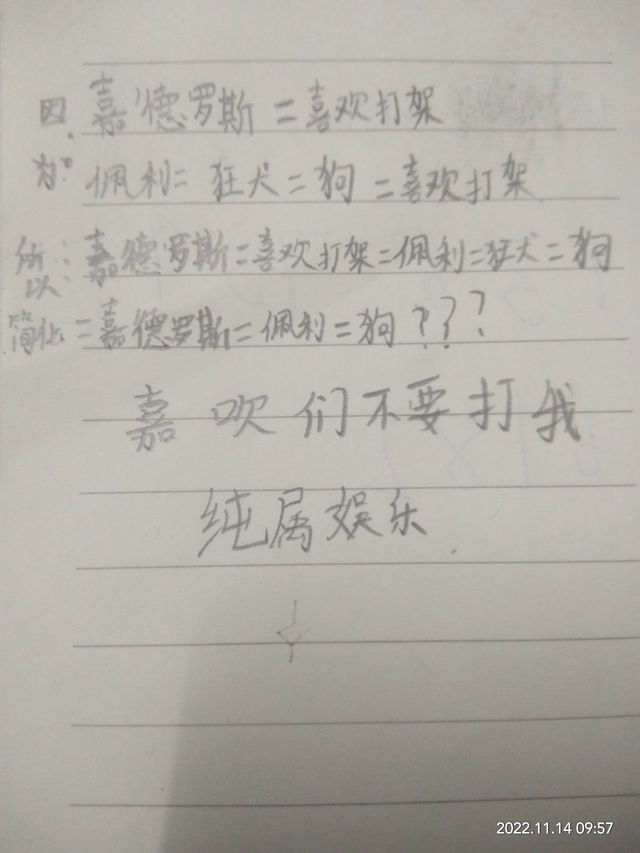 因 嘉德罗斯=喜欢打架
为: 佩利=狂犬=狗=喜欢打架
所以: 嘉德罗斯=喜欢打架=佩利=狂犬=狗
简化=嘉德罗斯=佩利=狗???
嘉吹们不要打我
纯属娱乐.
2022.11.14 09:57